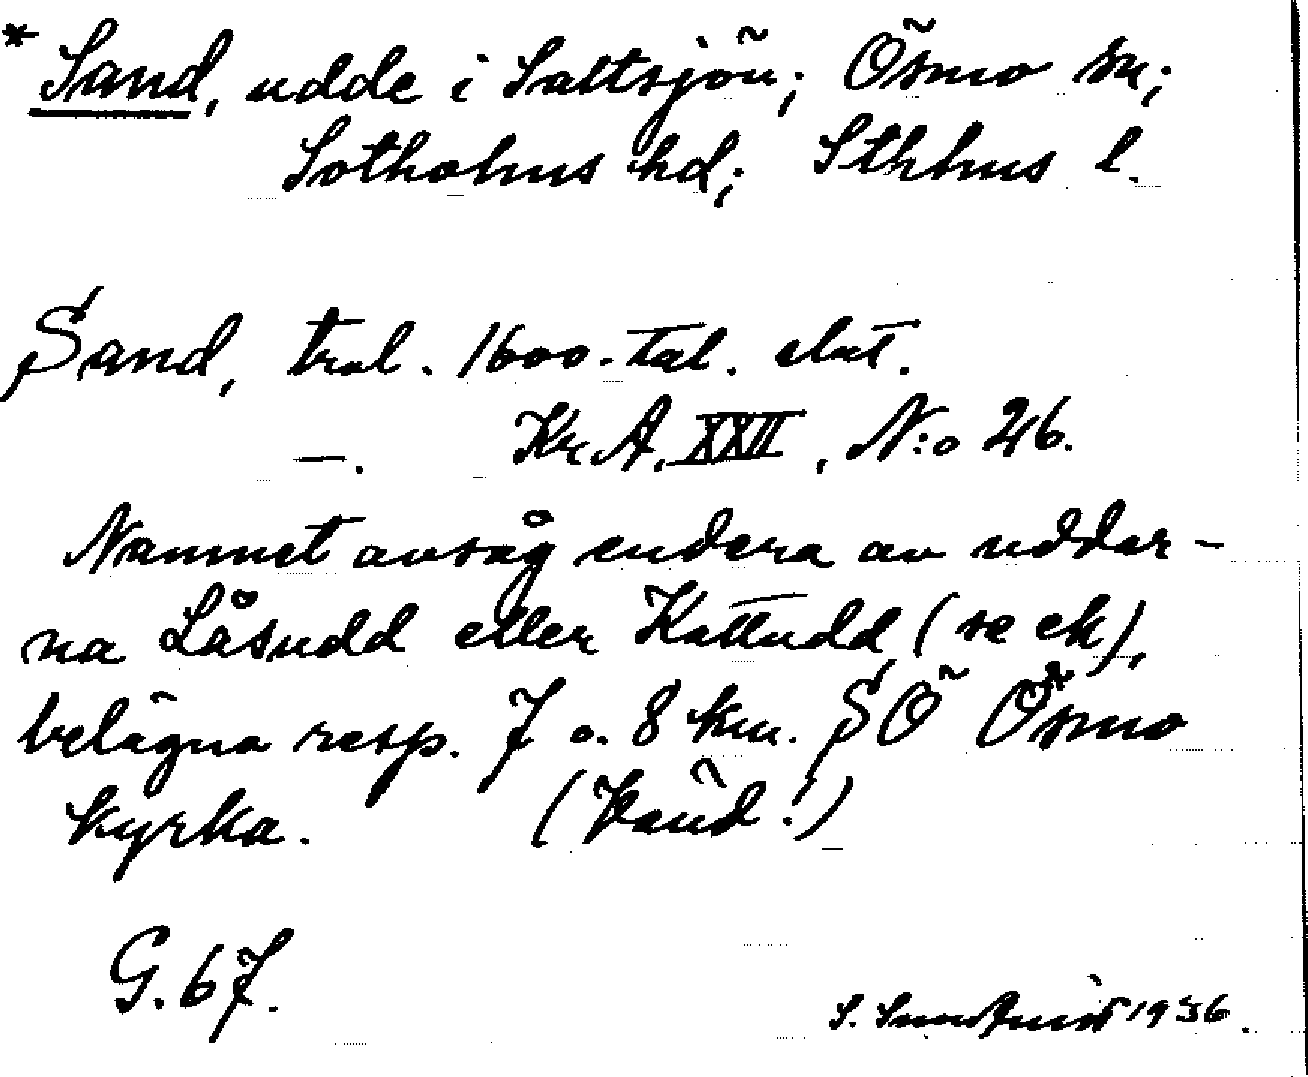 * Sand, udde i Saltsjön; Ösmo sn;
Sotholms hd; Sthlms l.
Sand, trol. 1600-tal. slut.
—. Kr.A. XXII, N:o 26.
Namnet avsåg endera av uddar-
na Låsudd eller Kattudd (se ek),
belägna resp. 7 o. 8 km. SÖ Ösmo
kyrka. (Hand!)
G. 67.
S. Sundqvist 1936.